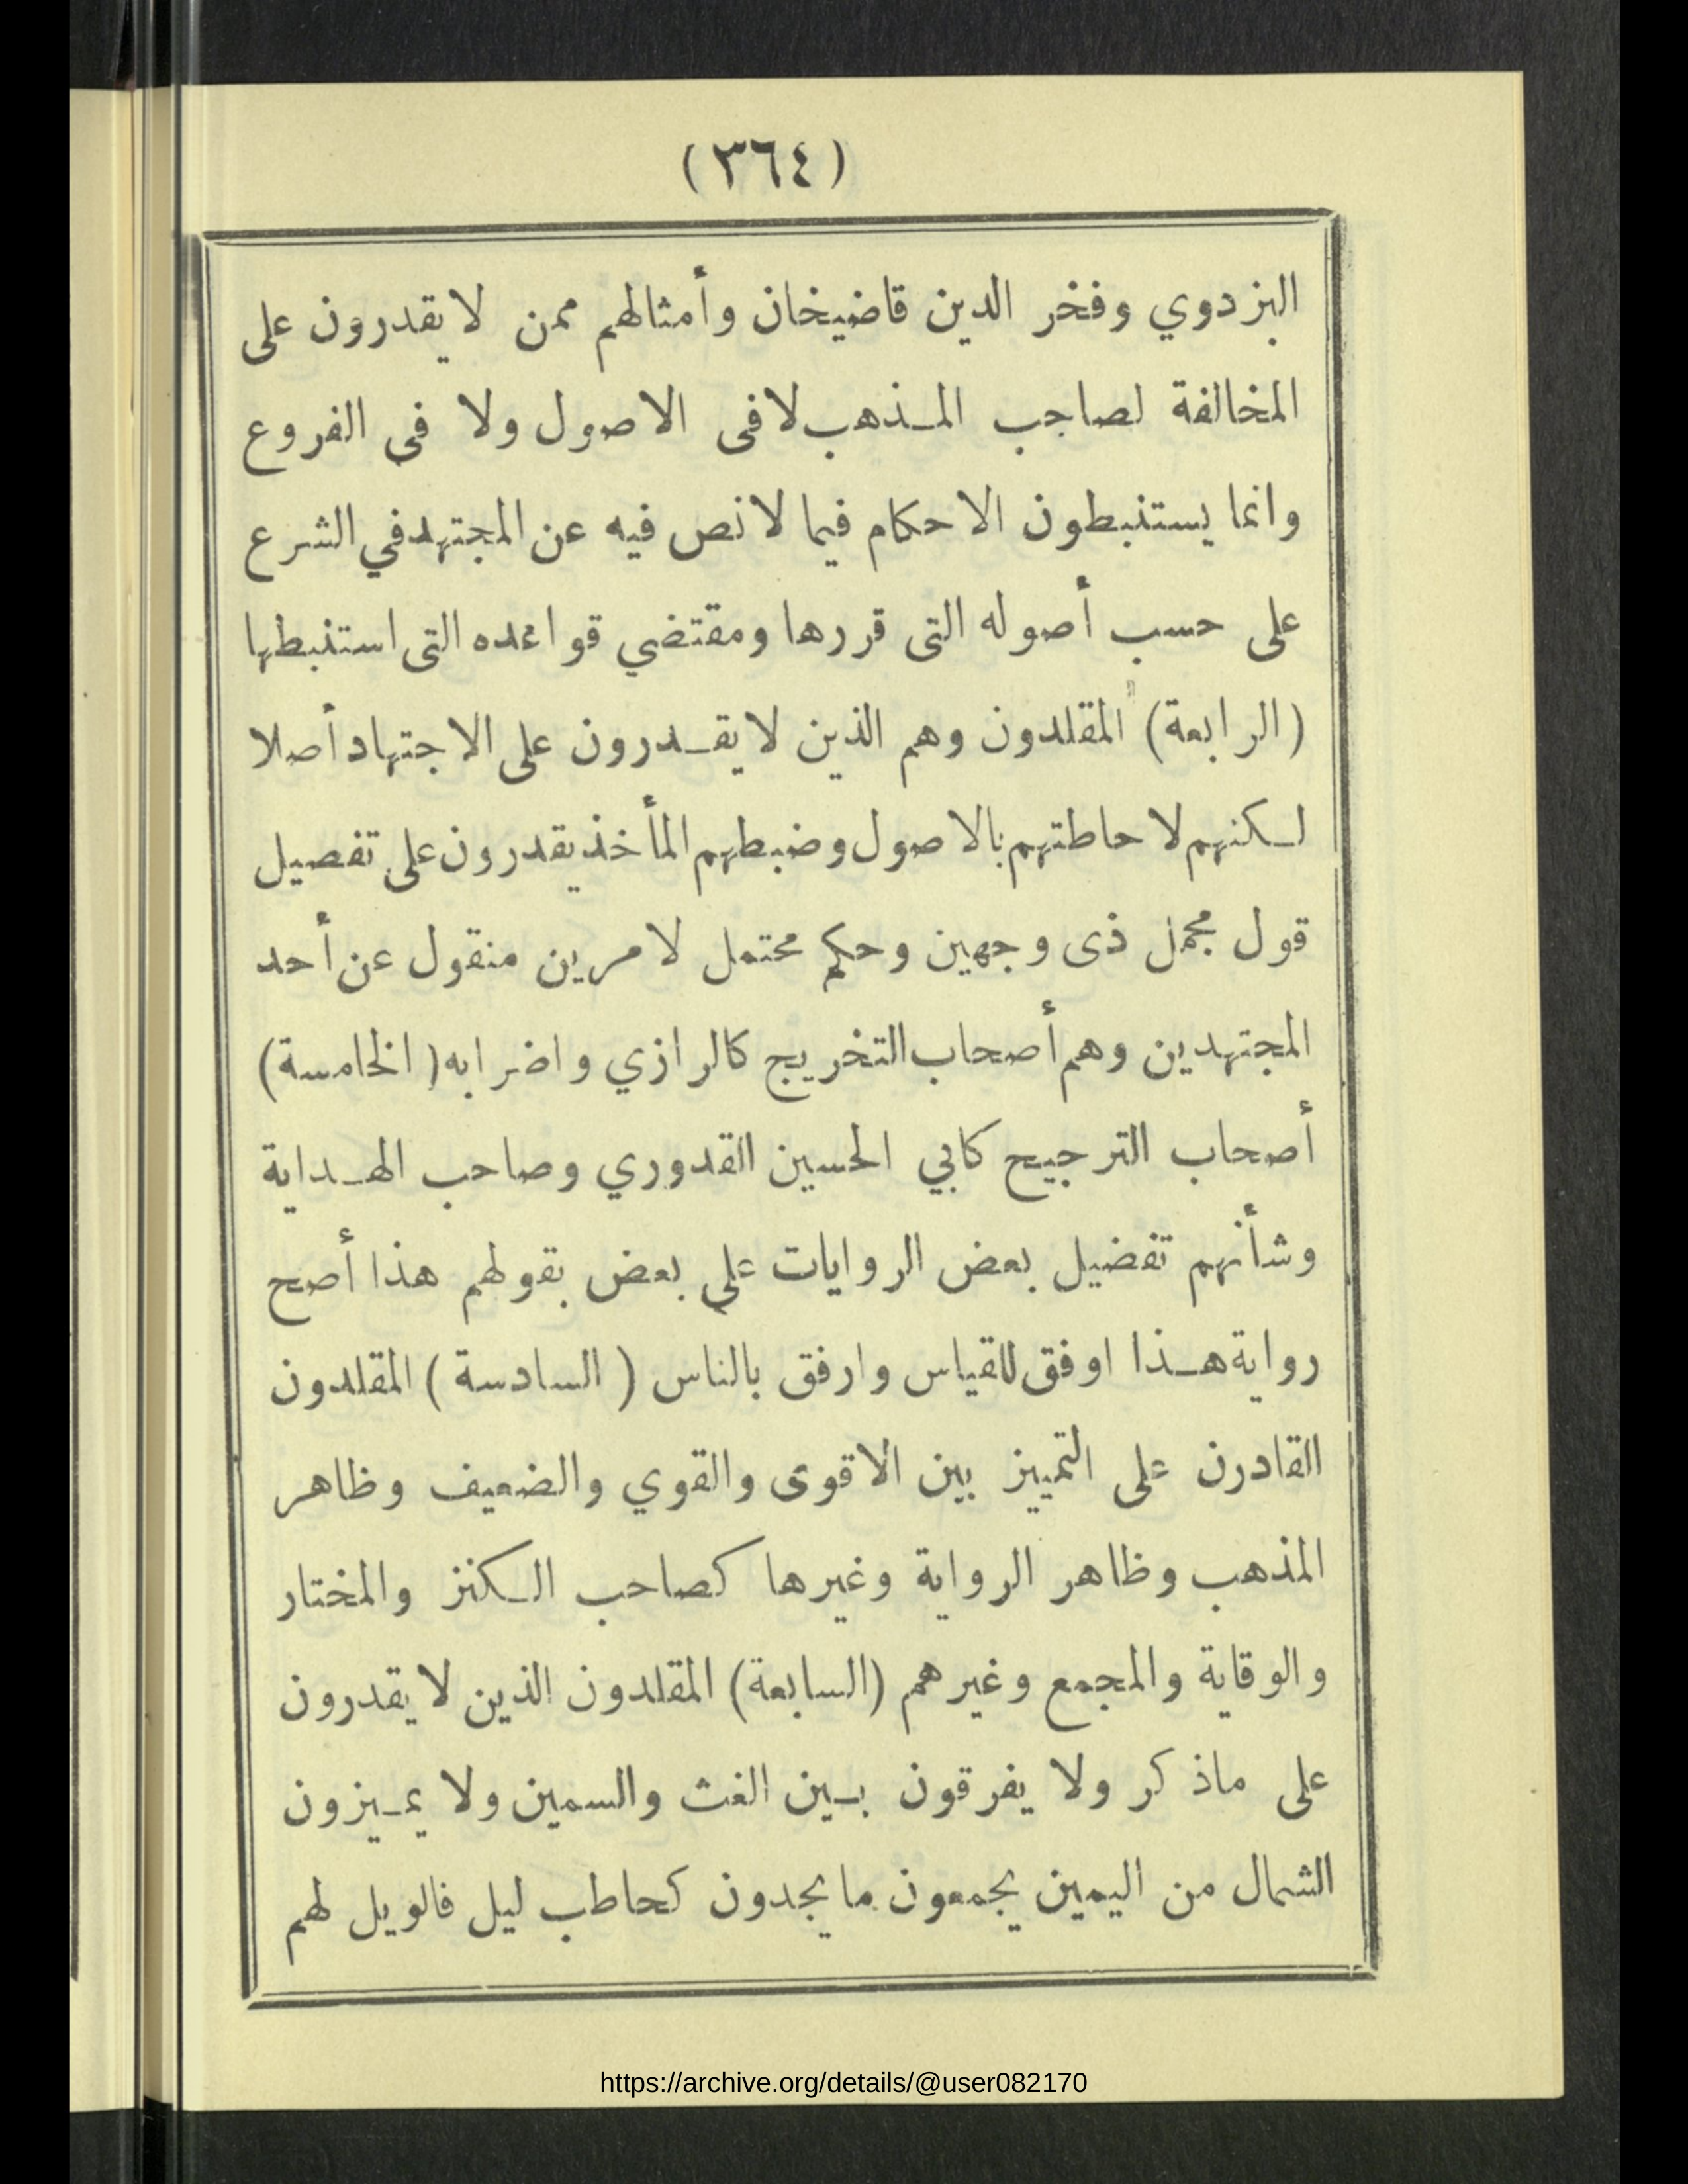 (٣٦٤)
البزدوي وفخر الدين قاضيخان وأمثالهم ممن لا يقدرون على
المخالفة لصاحب المذهب لافى الاصول ولا فى الفروع
وانما يستنبطون الاحكام فيما لا نص فيه عن المجتهد في الشرع
على حسب أصوله التى قررها ومقتضي قواعده التى استنبطها
(الرابعة) المقلدون وهم الذين لا يقدرون على الاجتهاد أصلا
لكنهم لاحاطتهم بالاصول وضبطهم المأخذ يقدرون على تفصيل
قول مجمل ذى وجهين وحكم محتمل لامرين منقول عن أحد
المجتهدين وهم أصحاب التخريج كالرازي واضرابه (الخامسة)
أصحاب الترجيح كابي الحسين القدوري وصاحب الهداية
وشأنهم تفضيل بعض الروايات على بعض بقولهم هذا أصح
رواية هذا اوفق للقياس وارفق بالناس (السادسة) المقلدون
القادرن على التمييز بين الاقوى والقوي والضعيف وظاهر
المذهب وظاهر الرواية وغيرها كصاحب الكنز والمختار
والوقاية والمجمع وغيرهم (السابعة) المقلدون الذين لا يقدرون
على ماذكر ولا يفرقون بين الغث والسمين ولا يميزون
الشمال من اليمين يجمعون ما يجدون كحاطب ليل فالويل لهم
https://archive.org/details/@user082170